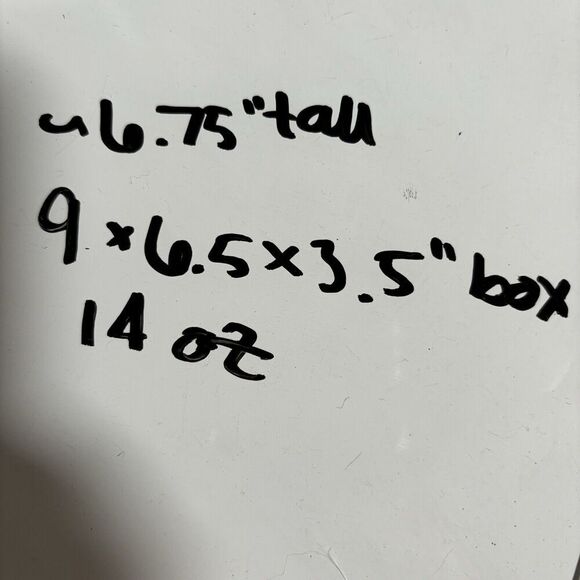 ~6.75" tall
9 x 6.5 x 3.5" box
14 oz